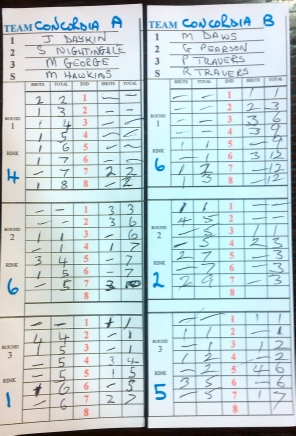 TEAM CONCORDIA A
1 J DASKIN
2 S NIGHTINGALE
3 M GEORGE
S M HAWKINS
SHOTS TOTAL END SHOTS TOTAL
ROUND 1
RINK 4
2 2 1 - -
1 3 2 - -
1 4 3 - -
1 5 4 - -
1 6 5 - -
1 7 6 - -
- 7 7 2 2
1 8 8 - 2
ROUND 2
RINK 6
- - 1 3 3
- - 2 3 6
1 1 3 - 6
- 1 4 1 7
3 4 5 - 7
1 5 6 - 7
- 5 7 3 10
8
ROUND 3
RINK 1
- - 1 1 1
4 4 2 - 1
1 5 3 - 1
- 5 4 3 4
- 5 5 1 5
1 6 6 - 5
- 6 7 2 7
8
TEAM CONCORDIA B
1 M DAWS
2 G PEARSON
3 P TRAVERS
S R TRAVERS
SHOTS TOTAL END SHOTS TOTAL
ROUND 1
RINK 6
- - 1 1 1
- - 2 2 3
- - 3 3 6
- - 4 3 9
1 1 5 - 9
- 1 6 3 12
1 2 7 - 12
1 3 8 - 12
ROUND 2
RINK 2
1 1 1 - -
4 5 2 - -
- 5 3 1 1
- 5 4 2 3
2 7 5 - 3
- 7 6 - 3
2 9 7 - 3
8
ROUND 3
RINK 5
- - 1 1 1
1 1 2 - 1
- 1 3 1 2
1 2 4 - 2
- 2 5 4 6
3 5 6 - 6
- 5 7 1 7
8